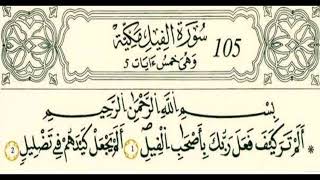 سُورَةُ الفِيلِ مَكِّيَّة
105
وَهِيَ خَمْسُ ءَايَاتٍ 5
بِسْمِ اللَّهِ الرَّحْمَٰنِ الرَّحِيمِ
* أَلَمْ تَرَ كَيْفَ فَعَلَ رَبُّكَ بِأَصْحَابِ الْفِيلِ 1 أَلَمْ يَجْعَلْ كَيْدَهُمْ فِي تَضْلِيلٍ 2